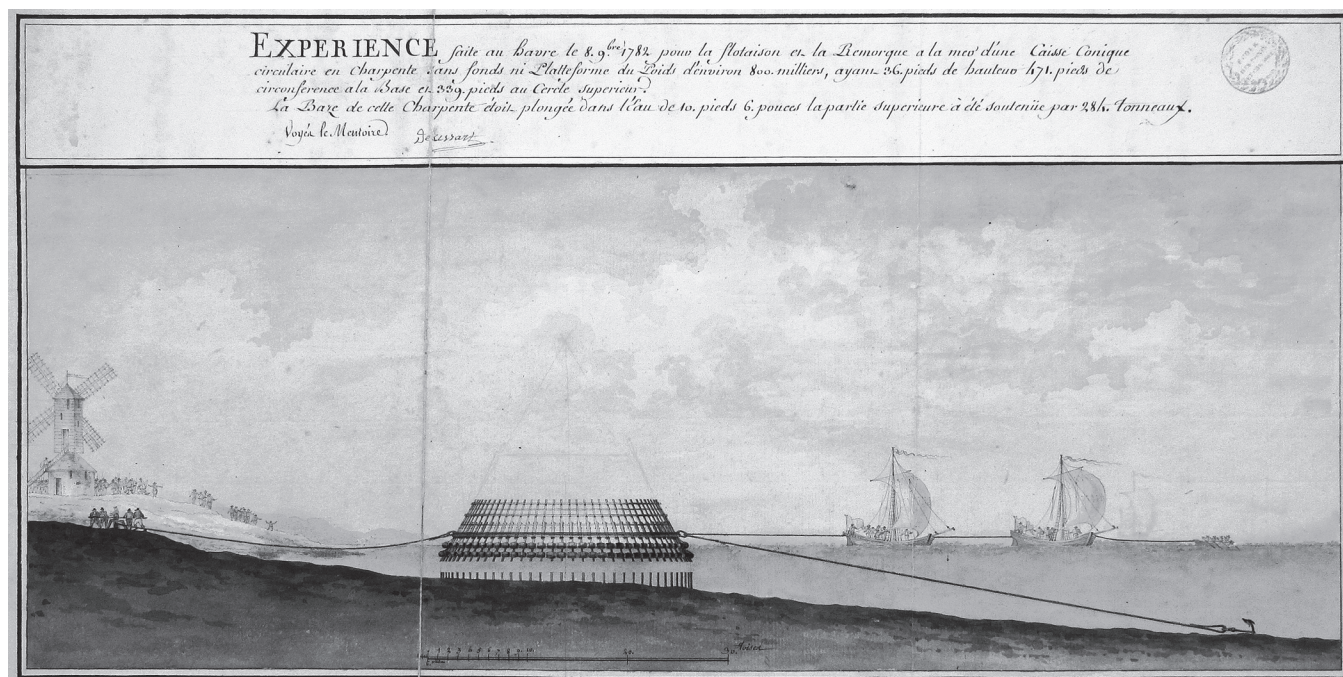 EXPERIENCE faite au Havre le 8. 9bre 1782 pour la flotaison et la Remorque a la mer d'une Caisse Conique
circulaire en Charpente Sans fonds ni Platteforme du Poids d'environ 800. milliers, ayant 36. pieds de hauteur 471. pieds de
circonference a la Base et 339. pieds au Cercle superieur.
La Baze de cette Charpente étoit plongée dans l'eau de 10. pieds 6. pouces la partie superieure à été soutenüe par 284. Tonneaux.
Voyés le Memoire Decessart
1 2 3 4 5 6 7 8 9 10 20 30 Toises